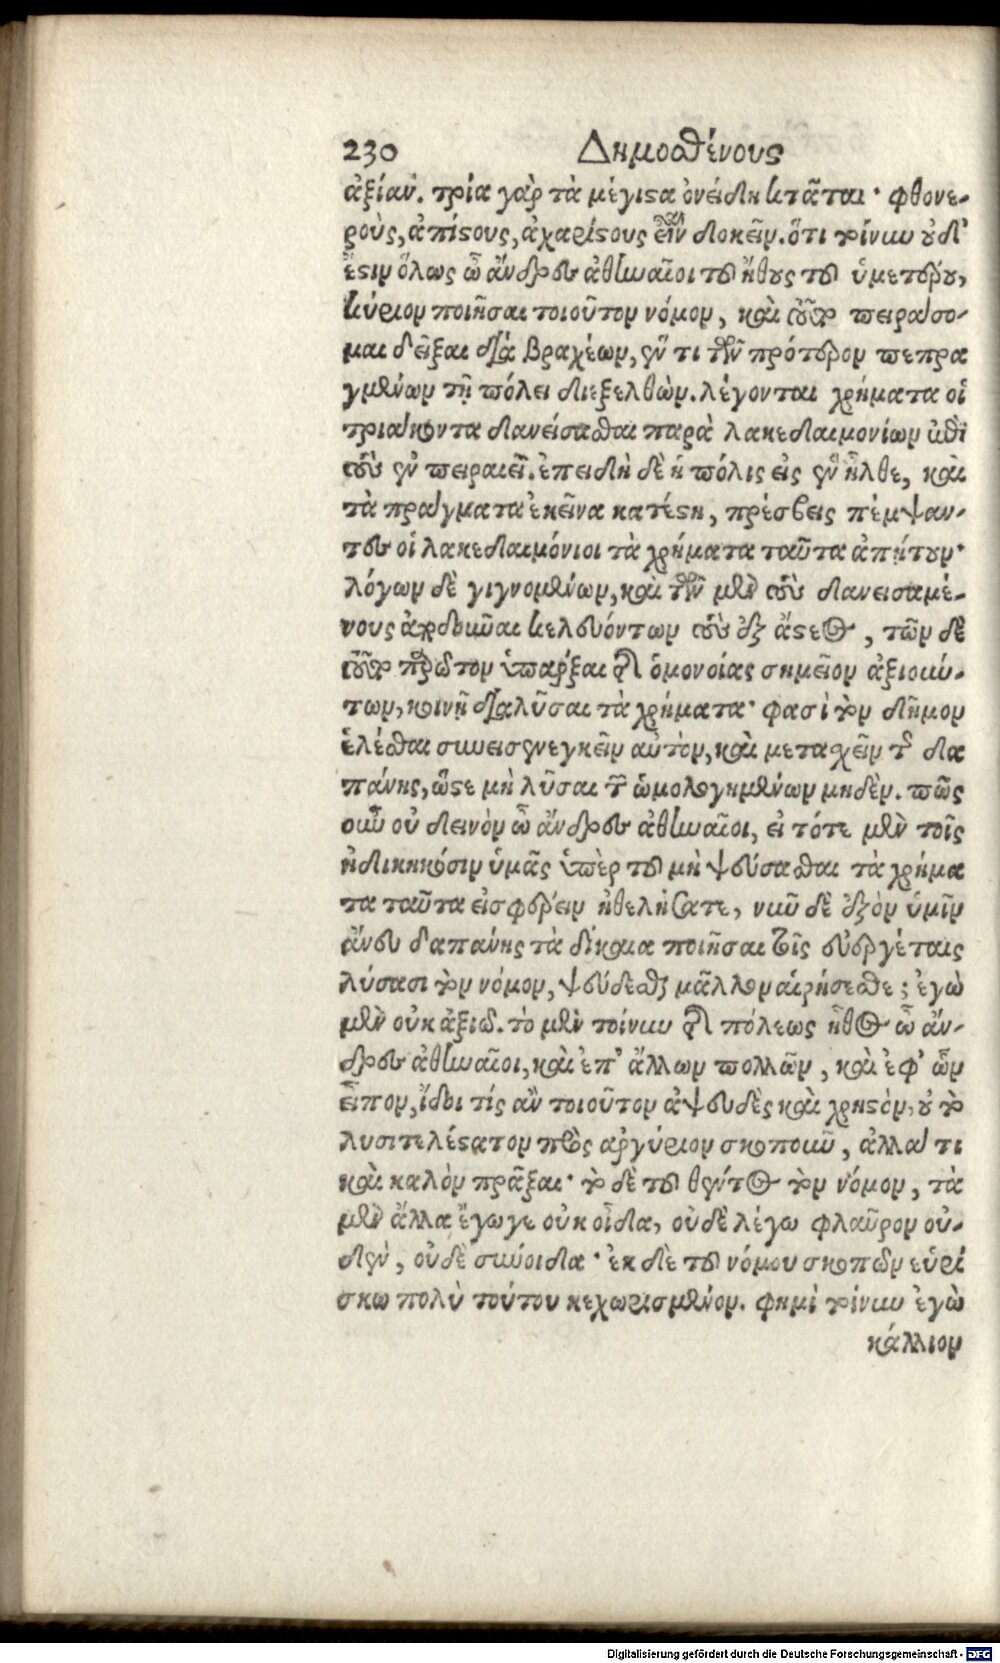 230 Δημοσθένους
ἀξίαν. τρία γὰρ τὰ μέγιστα ὀνείδη κτᾶται· φθονε-
ροὺς, ἀπίστους, ἀχαρίστους εἶναι δοκεῖν. ὅτι τοίνυν οὐδ'
ἔστιν ὅλως ὦ ἄνδρες ἀθηναῖοι τοῦ ἤθους τοῦ ὑμετέρου,
κύριον ποιῆσαι τοιοῦτον νόμον, καὶ τοῦτο πειράσο-
μαι δεῖξαι διὰ βραχέων, ἕν τι τῶν πρότερον πεπρα
γμένων τῇ πόλει διεξελθών. λέγονται χρήματα οἱ
τριάκοντα δανείσασθαι παρὰ λακεδαιμονίων ἐπὶ
τοὺς ἐν πειραιεῖ. ἐπειδὴ δὲ ἡ πόλις εἰς ἓν ἦλθε, καὶ
τὰ πράγματα ἐκεῖνα κατέστη, πρέσβεις πέμψαν-
τες οἱ λακεδαιμόνιοι τὰ χρήματα ταῦτα ἀπῄτουν·
λόγων δὲ γιγνομένων, καὶ τῶν μὲν τοὺς δανεισαμέ-
νους ἀποδοῦναι κελευόντων τοὺς ἐξ ἄστεος, τῶν δὲ
τοῦτο πρῶτον ὑπάρξαι τῆς ὁμονοίας σημεῖον ἀξιούν-
των, κοινῇ διαλῦσαι τὰ χρήματα· φασὶ τὸν δῆμον
ἑλέσθαι συνεισενεγκεῖν αὐτὸν, καὶ μετασχεῖν τῆς δα
πάνης, ὥστε μὴ λῦσαι τῶν ὡμολογημένων μηδέν. πῶς
οὖν οὐ δεινὸν ὦ ἄνδρες ἀθηναῖοι, εἰ τότε μὲν τοῖς
ἠδικηκόσιν ὑμᾶς ὑπὲρ τοῦ μὴ ψεύσασθαι τὰ χρήμα
τα ταῦτα εἰσφέρειν ἠθελήσατε, νῦν δὲ ἐξὸν ὑμῖν
ἄνευ δαπάνης τὰ δίκαια ποιῆσαι τοῖς εὐεργέταις
λύσασι τὸν νόμον, ψεύδεσθαι μᾶλλον αἱρήσεσθε; ἐγὼ
μὲν οὐκ ἀξιῶ. τὸ μὲν τοίνυν τῆς πόλεως ἦθος ὦ ἄν-
δρες ἀθηναῖοι, καὶ ἐπ' ἄλλων πολλῶν, καὶ ἐφ' ὧν
εἶπον, ἴδοι τίς ἂν τοιοῦτον ἀψευδὲς καὶ χρηστὸν, οὐ τὸ
λυσιτελέστατον πρὸς ἀργύριον σκοποῦν, ἀλλά τι
καὶ καλὸν πρᾶξαι· τὸ δὲ τοῦ θέντος τὸν νόμον, τὰ
μὲν ἄλλα ἔγωγε οὐκ οἶδα, οὐδὲ λέγω φλαῦρον οὐ-
δέν, οὐδὲ σύνοιδα· ἐκ δὲ τοῦ νόμου σκοπῶν εὑρί
σκω πολὺ τούτου κεχωρισμένον. φημὶ τοίνυν ἐγὼ
κάλλιον
Digitalisierung gefördert durch die Deutsche Forschungsgemeinschaft - DFG